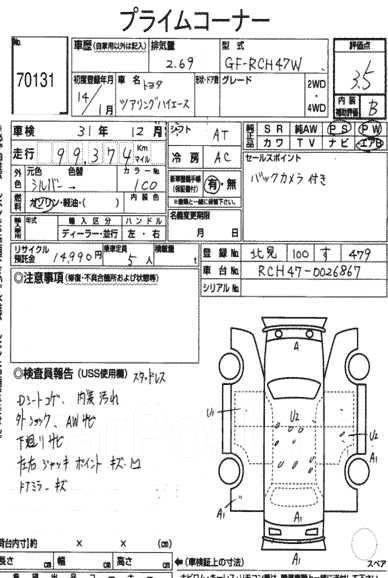 プライムコーナー
No. 70131
車歴(自家用以外は記入)
排気量 2.69
型式 GF-RCH47W
評価点 3.5
初度登録年月 14年 1月
車名 トヨタ
ツアリングハイエース
ドア・形状
グレード
2WD
4WD
内装
補助評価 B
車検 31年 12月
シフト AT
純正品 SR 純AW PS PW
カワ TV ナビ エアB
走行 99,374 Km マイル
冷房 AC
セールスポイント
バックカメラ付き
外色 元色 シルバー→ 色替 カラーNo. 1C0
燃料 ガソリン・軽油・( ) 内装色
新車整備手帳(保証書付) 有・無
名義変更期限
月 日
年式 輸入区分 ハンドル
ディーラー・並行 左・右
リサイクル預託金 14,990円
乗車定員 5人
積載量 t
登録No. 北見 100 す 479
車台No. RCH47-0026867
シリアルNo.
◎注意事項(修復・不具合箇所および状態等)
◎検査員報告(USS使用欄) スタッドレス
Dシートコゲ、内装汚れ
外ショック、AWサビ
下廻りサビ
左右ジャッキポイントキズ・凹
ドアミラーキズ
A
U1
U2
U2
A1
A1
A1
A1
スペア
荷台内寸約 × × (㎝)
長さ ㎝ 幅 ㎝ 高さ ㎝
←(車検証上の寸法)